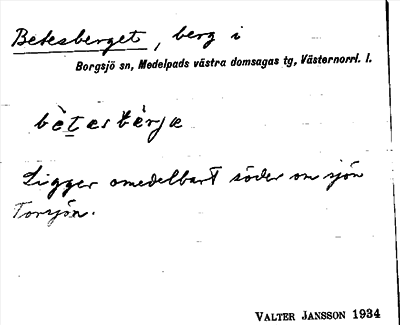 Betesberget, berg i
Borgsjö sn, Medelpads västra domsagas tg, Västernorrl. l.
bètesbèrje
Ligger omedelbart söder om sjön
Torsjön.
VALTER JANSSON 1934